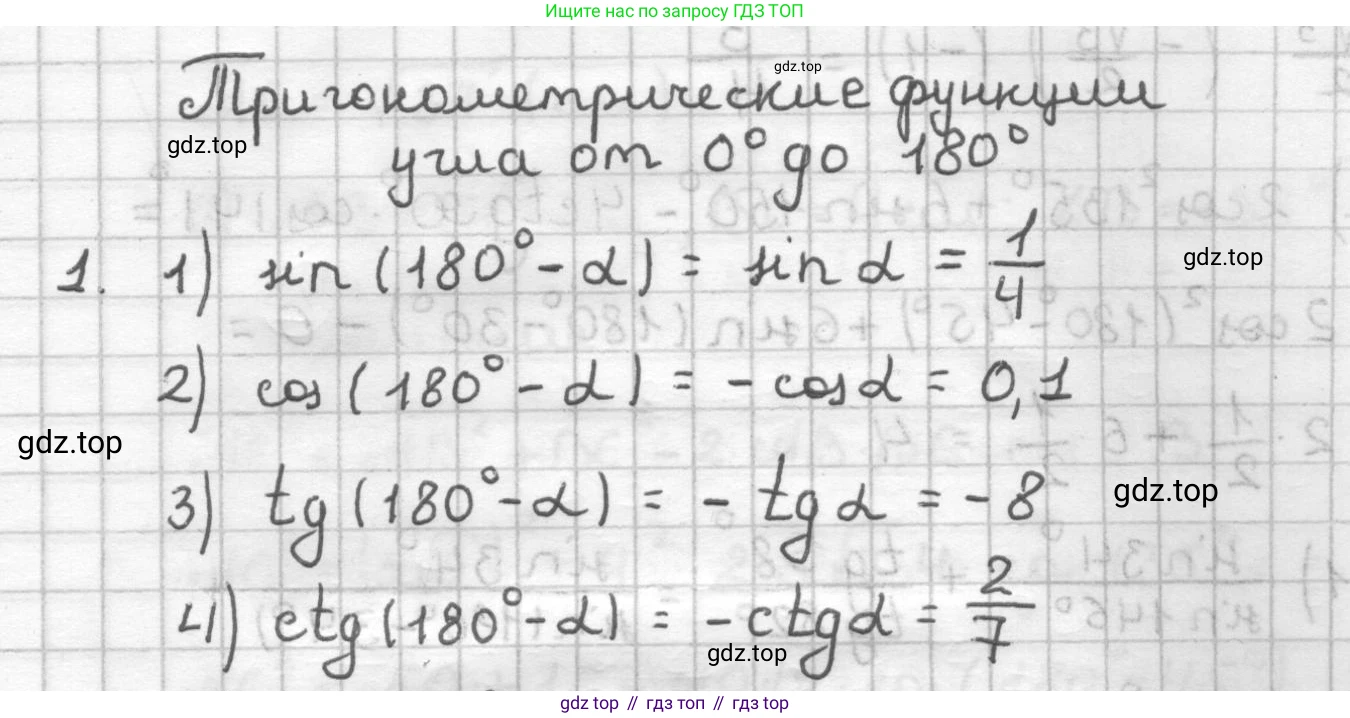 Ищите нас по запросу ГДЗ ТОП
Тригонометрические функции
gdz.top
gdz.top
угла от 0° до 180°
1. 1) sin (180° - α) = sin α = 1/4
gdz.top
2) cos (180° - α) = - cos α = 0,1
gdz.top
3) tg (180° - α) = - tg α = - 8
gdz.top
4) ctg (180° - α) = - ctg α = 2/7
gdz.top
gdz top // гдз топ // gdz top